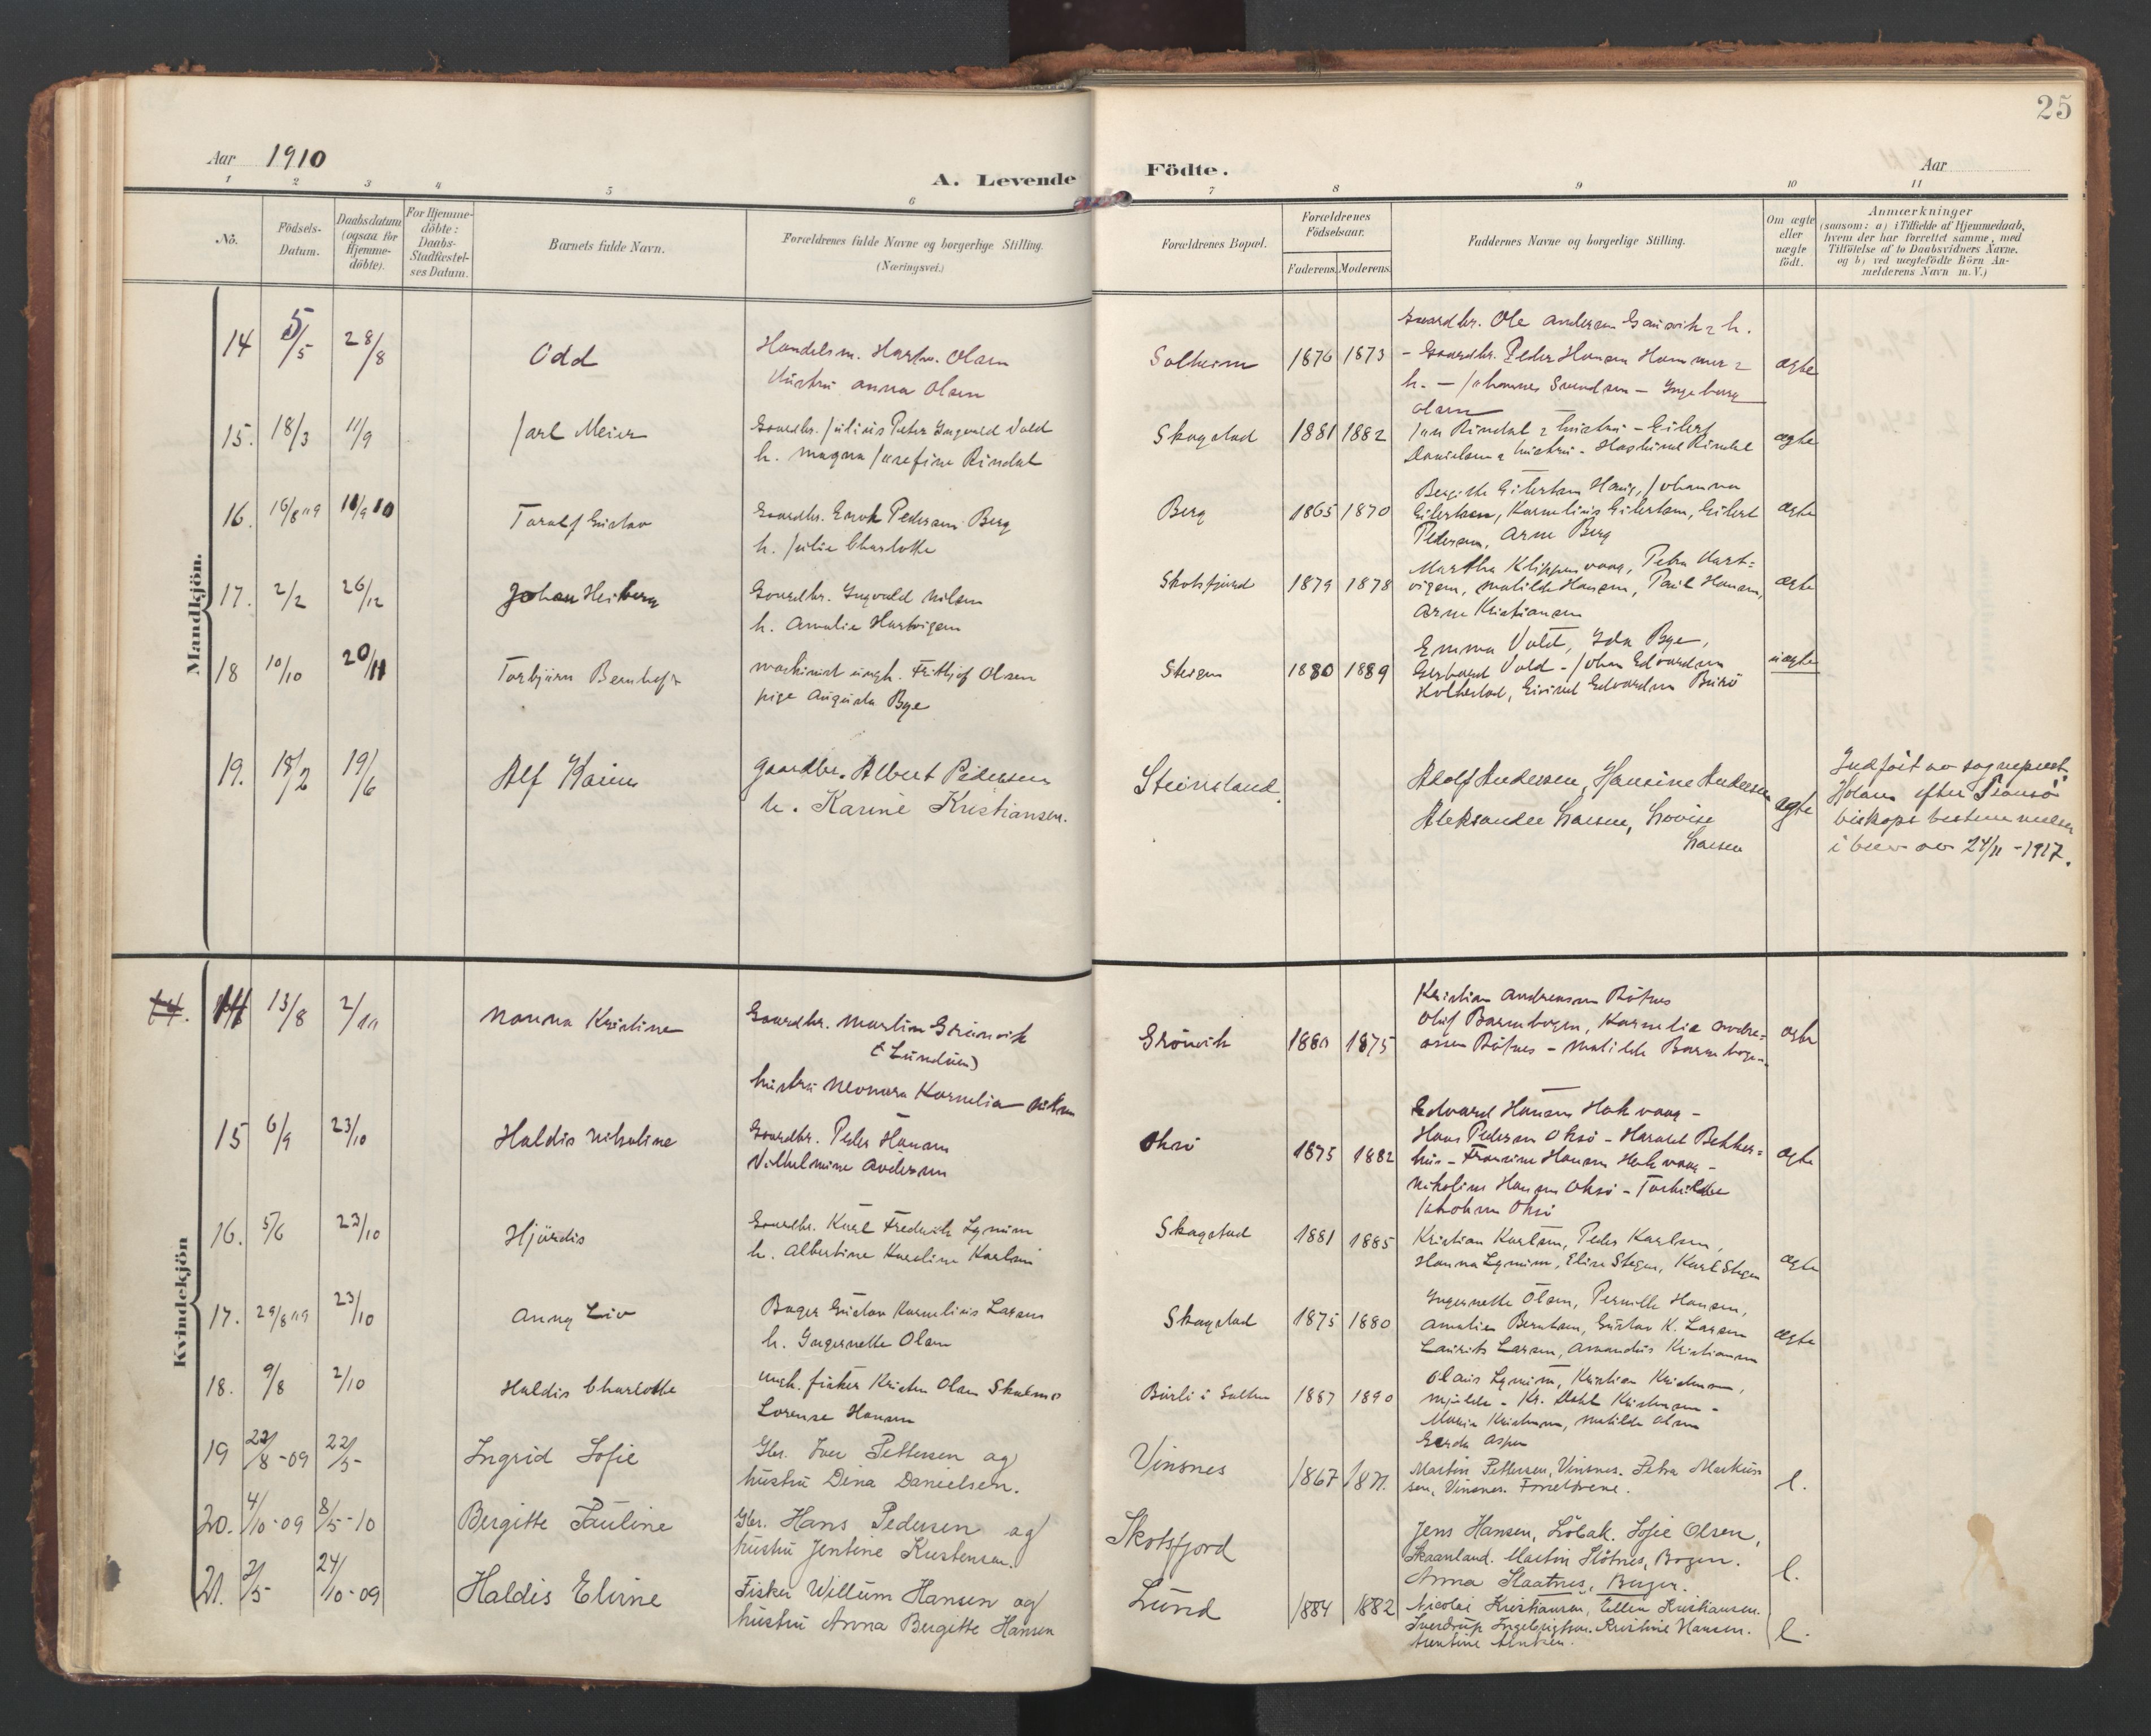 25
Aar 1910
A. Levende Födte.
Aar
1 2 3 4 5 6 7 8 9 10 11
No.
Födsels-
Datum.
Daabsdatum
(ogsaa for
Hjemme-
döbte).
For Hjemme-
döbte:
Daabs-
Stadfæstel-
ses Datum.
Barnets fulde Navn.
Forældrenes fulde Navne og borgerlige Stilling.
(Næringsvei.)
Forældrenes Bopæl.
Forældrenes
Födselsaar.
Faderens. Moderens.
Faddernes Navne og borgerlige Stilling.
Om ægte
eller
uægte
födt.
Anmærkninger
(saasom: a) i Tilfælde af Hjemmedaab,
hvem der har forrettet samme, med
Tilföielse af to Daabsvidners Navne.
og b) ved uægtefödte Börn An-
melderens Navn m. V.)
Mandkjön.
14 5/5 28/8 Odd
Handelsm. Hartv. Olsen
Hustru Anna Olsen
Solheim 1876 1873
Gaardbr. Ole Andersen h.
- Gaardbr. Peder Hansen Hammer
h. - Johannes Svendsen - Ingeborg
Olsen
ægte
15. 18/3 11/9 Jarl Meier
Gaardbr. Julius Peter Ingvald Vold
h. Magna Josefine Rindal
Skagstad 1881 1882
Rindal hustru - Eilert
Danielsen hustru - Rindal
ægte
16. 16/8 "9 11/9 10 Toralf Gustav
Gaardbr. Enok Pedersen Berg
h. Julie Charlotte
Berg 1865 1870
Eilertsen Haug, Johanna
Eilertsen, Kornelius Eilertsen, Eilert
Pedersen, Arne Berg
ægte
17. 2/2 26/12 Johan Heiberg
Gaardbr. Ingvald Nilsen
h. Amalie Hartvigsen
Skotsfjord 1879 1878
Martha Klippenvaag, Petra Hart-
vigsen, Matilde Hansen, Paul Hansen,
Arne Kristiansen
ægte
18 10/10 20/11 Torbjörn Bernhoft
maskinist ungk. Frithjof Olsen
pige Augusta Bye
Steigen 1880 1889
Emma Vold, Ida Bye,
Gerhard Vold - Johan Edvardsen
Holkestad, Eivind Edvardsen
uægte
19. 18/2 19/6 Alf Kaine
Gaardbr. Albert Pedersen
h. Karine Kristiansen.
Steinsland.
Adolf Andersen, Hansine Andersen
Aleksander Larsen, Lovise
Larsen
ægte
Indfört av sogneprest
efter Tromsö
biskops bestemmelse
i brev av 24/11 - 1917.
Kvindekjön
14. 14 13/8 2/10 Nanna Kristine
Gaardbr. Martin Grönvik
(Lunduen)
hustru Neonora Kornelia Nilsen
Grönvik 1880 1875
Kristian Andreassen Rötnes
Oluf Barmbogen, Kornelia Andre-
assen Rötnes - Matilde Barmbogen
ægte
15 6/9 23/10 Haldis Nikoline
Gaardbr. Peder Hansen
Vilhelmine Andersen
Oksö 1875 1882
Edvard Hansen Hakvaag -
Hans Pedersen Oksö - Harald Bekker-
hus - Fransine Hansen Hakvaag -
Nikoline Hansen Oksö - Torhilde
Jakobsen Oksö
ægte
16. 5/6 23/10 Hjördis
Gaardbr. Karl Fredrik Lynum
h. Albertine Karoline Karlsen
Skagstad 1881 1885
Kristian Karlsen, Peder Karlsen,
Hanna Lynum, Elise Steigen, Karl Steigen
ægte
17. 29/8 "9 23/10 Anny Liv
Bager Gustav Kornelius Larsen
h. Ingernette Olsen
Skagstad 1875 1880
Ingernette Olsen, Pernille Hansen,
Amalie Berntsen, Gustav K. Larsen
Laurits Larsen, Amandus Kristiansen
ægte
18. 9/8 2/10 Haldis Charlotte
ungk. fisker Kristen Olsen
Lorense Hansen
1887 1890
Olaus Lynum, Kristian Kristensen,
- Kr. Dahl Kristensen -
Maria Kristensen, Matilde Olsen
Gerda Aspen
19 22/8 - 09 22/5 - Ingrid Sofie
Gbr. Iver Pettersen og
hustru Dina Danielsen.
Vinsnes 1867 1871.
Martin Pettersen, Vinsnes. Petra Markus-
sen, Vinsnes. Forældrene.
l.
20. 4/10 - 09 8/5 - 10 Bergitte Pauline
Gbr. Hans Pedersen og
hustru Jentine Kristensen.
Skotsfjord
Jens Hansen, Löbak. Sofie Olsen,
Skaanland. Martin Slötnes, Bogen.
Anna Slaatnes, Bogen.
l.
21. 3/5 - 24/10 - 09 Haldis Elvine
Fisker Willum Hansen og
hustru Anna Bergitte Hansen
Lund 1884 1882
Nicolai Kristiansen, Ellen Kristiansen.
Sverdrup Ingebrigtsen. Kristine Hansen.
l.